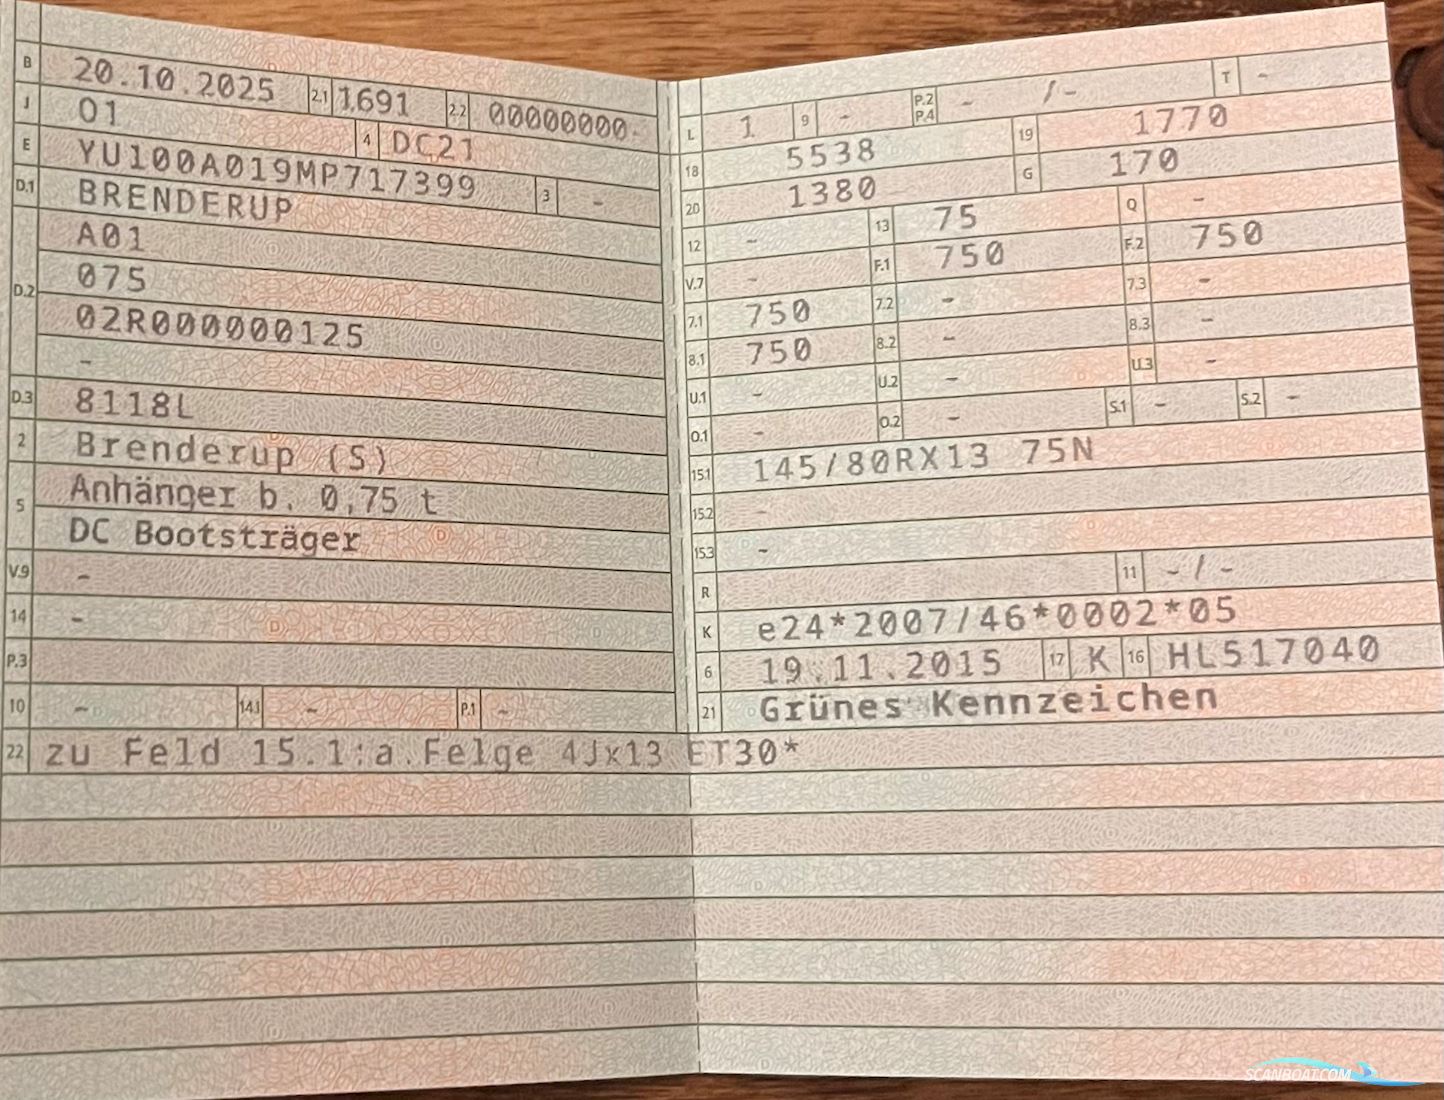 B 20.10.2025 2.1 1691 2.2 00000000-
J 01 4 DC21
E YU100A019MP717399 3 -
D.1 BRENDERUP
A01
D.2 075
02R000000125
-
D.3 8118L
2 Brenderup (S)
5 Anhänger b. 0,75 t
DC Bootsträger
V.9 -
14 -
P.3
10 - 14.1 - P.1 -
L 1 9 - P.2 P.4 - / - T -
18 5538 19 1770
20 1380 G 170
12 - 13 75 Q -
V.7 - F.1 750 F.2 750
7.1 750 7.2 - 7.3 -
8.1 750 8.2 - 8.3 -
U.1 - U.2 - U.3 -
O.1 - O.2 - S.1 - S.2 -
15.1 145/80RX13 75N
15.2 -
15.3 -
R 11 - / -
K e24*2007/46*0002*05
6 19.11.2015 17 K 16 HL517040
21 Grünes Kennzeichen
22 zu Feld 15.1:a.Felge 4Jx13 ET30*
SCANBOAT.COM